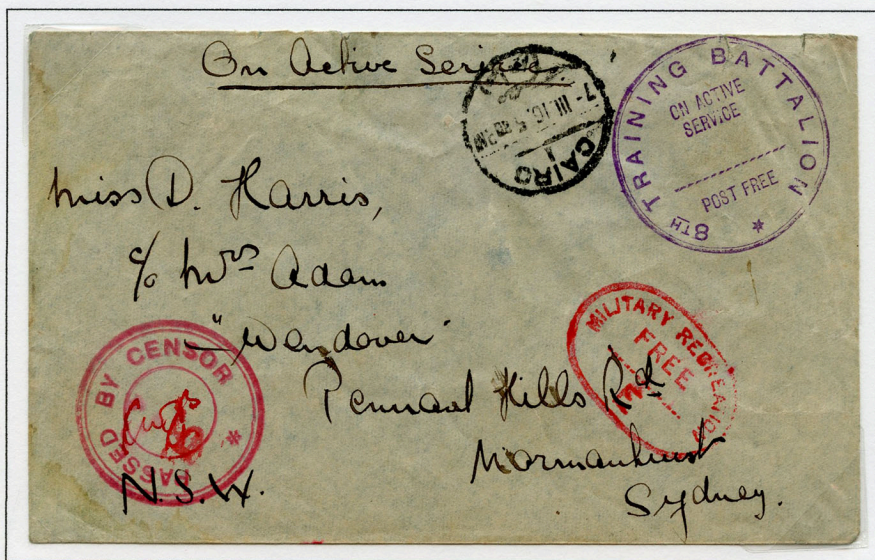 On Active Service
CAIRO
1
7-III.16. 5
8TH TRAINING BATTALION
ON ACTIVE
SERVICE
POST FREE
Miss D. Harris,
c/o Mrs Adam
"Wendover"
Pennant Hills Rd
Normanhurst
Sydney.
N.S.W.
PASSED BY CENSOR
MILITARY RECREATION
FREE